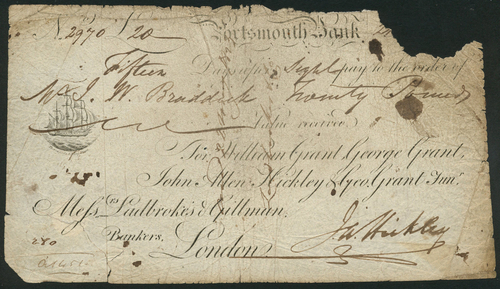 N. 2970 £20 Portsmouth Bank
Fifteen Days after Sight pay to the order of
Mr. J. W. Braddick Twenty Pounds
Value received
For William Grant, George Grant,
John Allen Hickley & Geo. Grant Junr.
Messrs. Ladbrokes & Gillman,
Bankers,
London
JA Hickley
280